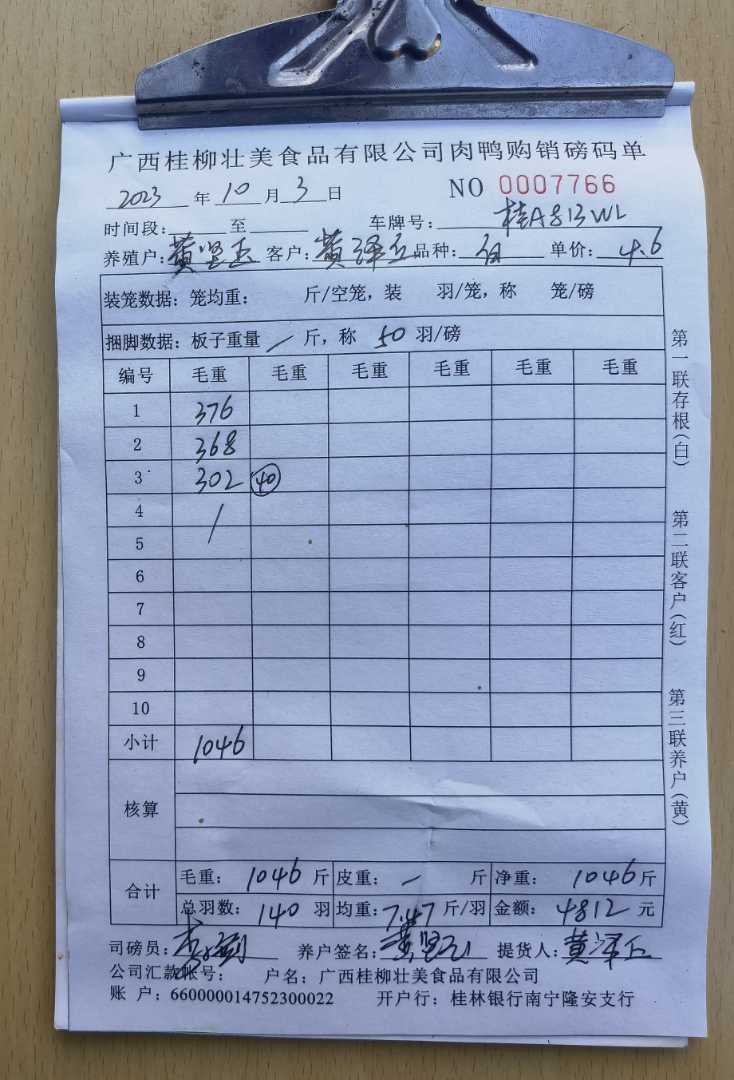 广西桂柳壮美食品有限公司肉鸭购销磅码单
2023 年 10 月 3 日 NO 0007766
时间段: 至 车牌号: 桂A813WL
养殖户: 黄坚 客户: 黄泽 品种: 白 单价: 4.6
装笼数据: 笼均重: 斤/空笼, 装 羽/笼, 称 笼/磅
捆脚数据: 板子重量 / 斤, 称 50 羽/磅
编号 毛重 毛重 毛重 毛重 毛重 毛重
1 376
2 368
3 302 40
4 /
5
6
7
8
9
10
小计 1046
核算
合计 毛重: 1046 斤 皮重: — 斤 净重: 1046 斤
总羽数: 140 羽 均重: 7.47 斤/羽 金额: 4812 元
司磅员: 李 养户签名: 黄坚 提货人: 黄泽
公司汇款帐号: 户名: 广西桂柳壮美食品有限公司
账 户: 660000014752300022 开户行: 桂林银行南宁隆安支行
第一联存根(白)
第二联客户(红)
第三联养户(黄)